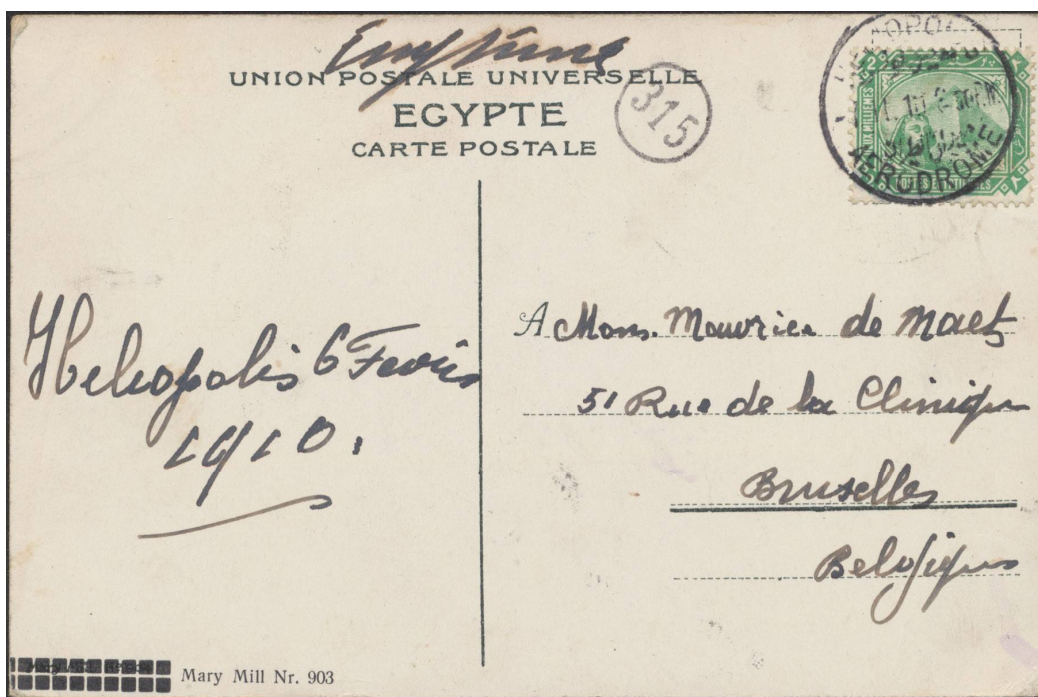 UNION POSTALE UNIVERSELLE
EGYPTE
CARTE POSTALE
315
2
DEUX MILLIEMES
AERODROME
Heliopolis 6 Fevrier
1910.
A Mons. Maurice de Maet
51 Rue de la Clinique
Bruxelles
Belgique
Mary Mill Nr. 903